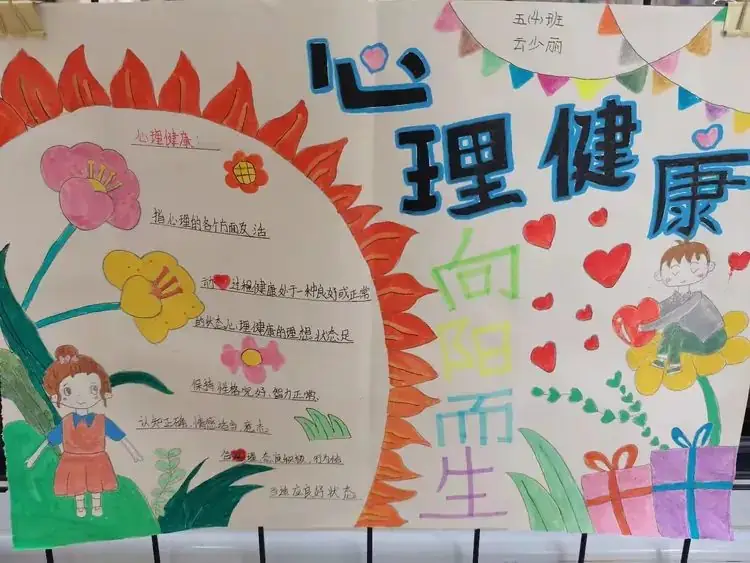 五(4)班
云少丽
心理健康
向阳而生
心理健康:
指心理的各个方面及活
动 过程健康处于一种良好或正常
的状态心理健康的理想状态是
保持性格完好、智力正常、
认知正确、情感适当、意志
合理、态度积极、行为恰
当 适应良好状态。